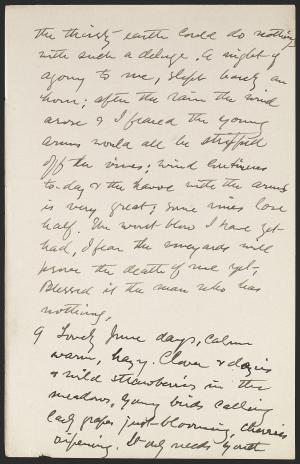 the thirsty earth could do nothing
with such a deluge. A night of
agony to me, slept barely an
hour; after the rain the wind
arose & I feared the young
arms would all be stripped
off the vines; wind continues
to-day & the havoc with the arms
is very great; some vines lose
half. The worst blow I have yet
had, I fear the vineyards will
prove the death of me yet.
Blessed is the man who has
nothing.
9 Lovely June days, calm
warm, hazy. Clover & daisies
& wild strawberries in the
meadows, young birds calling
early grapes just blooming, cherries
ripening. It only needs youth